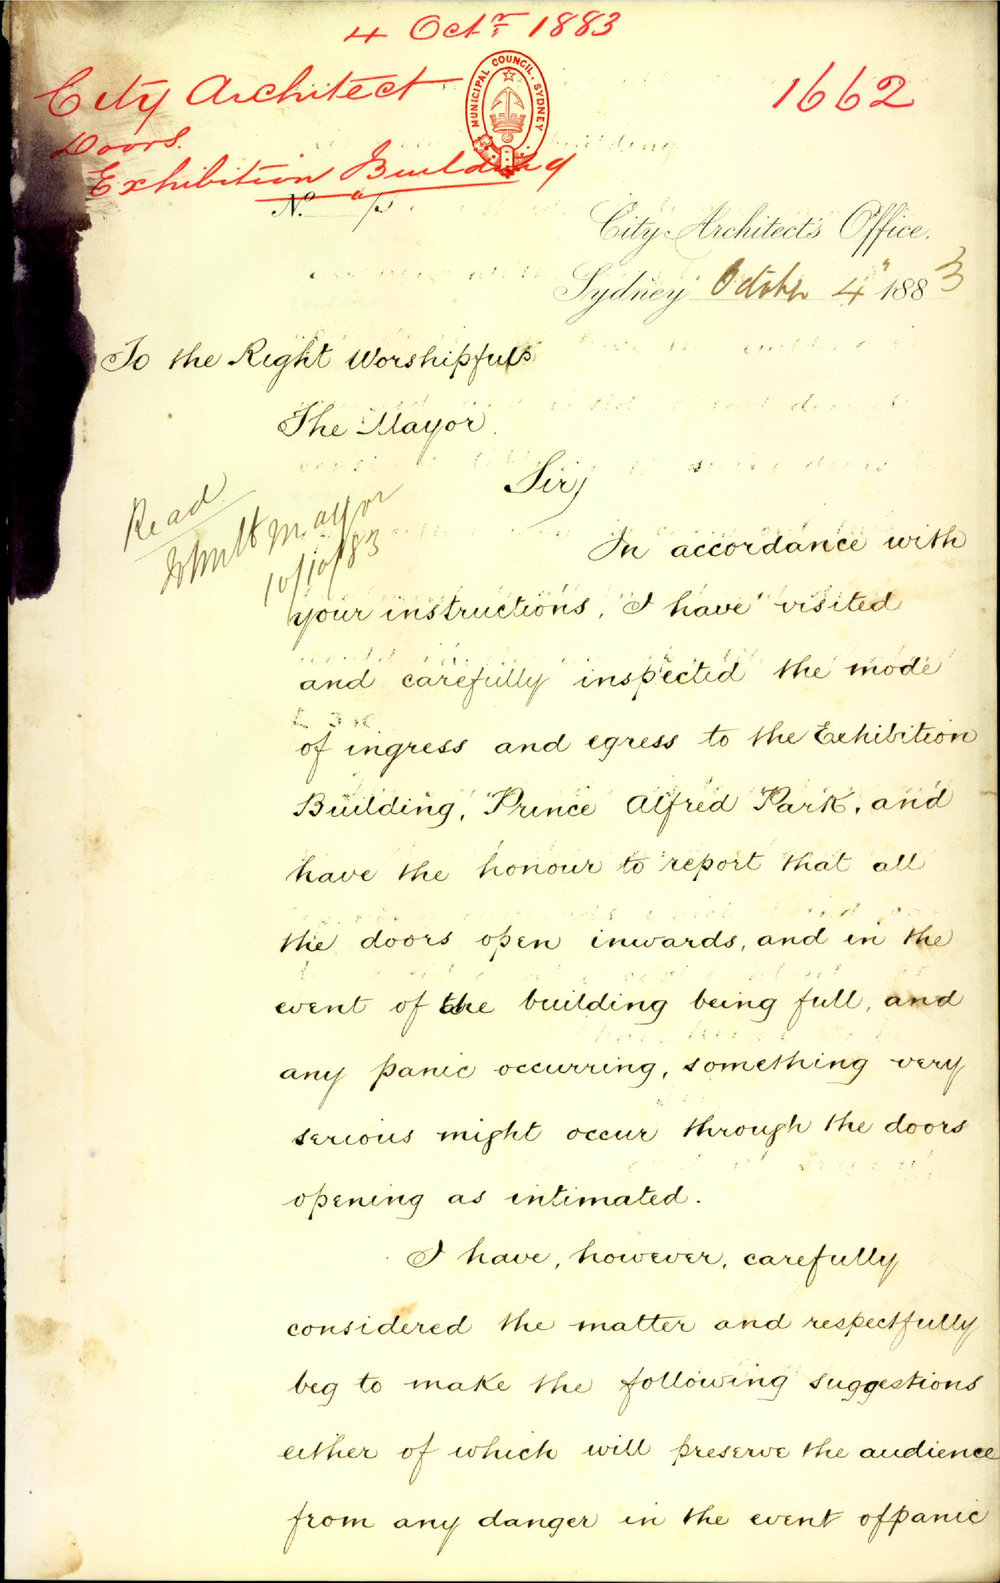 4 Octr 1883
City Architect
1662
Doors.
Exhibition Building
MUNICIPAL COUNCIL. SYDNEY
No.
City Architect's Office.
Sydney October 4" 1883
To the Right Worshipful
The Mayor.
Sir,
Read
Mayor
10/10/83
In accordance with
your instructions, I have visited
and carefully inspected the mode
of ingress and egress to the Exhibition
Building, Prince Alfred Park, and
have the honour to report that all
the doors open inwards, and in the
event of the building being full, and
any panic occurring, something very
serious might occur through the doors
opening as intimated.
I have, however, carefully
considered the matter and respectfully
beg to make the following suggestions
either of which will preserve the audience
from any danger in the event of panic